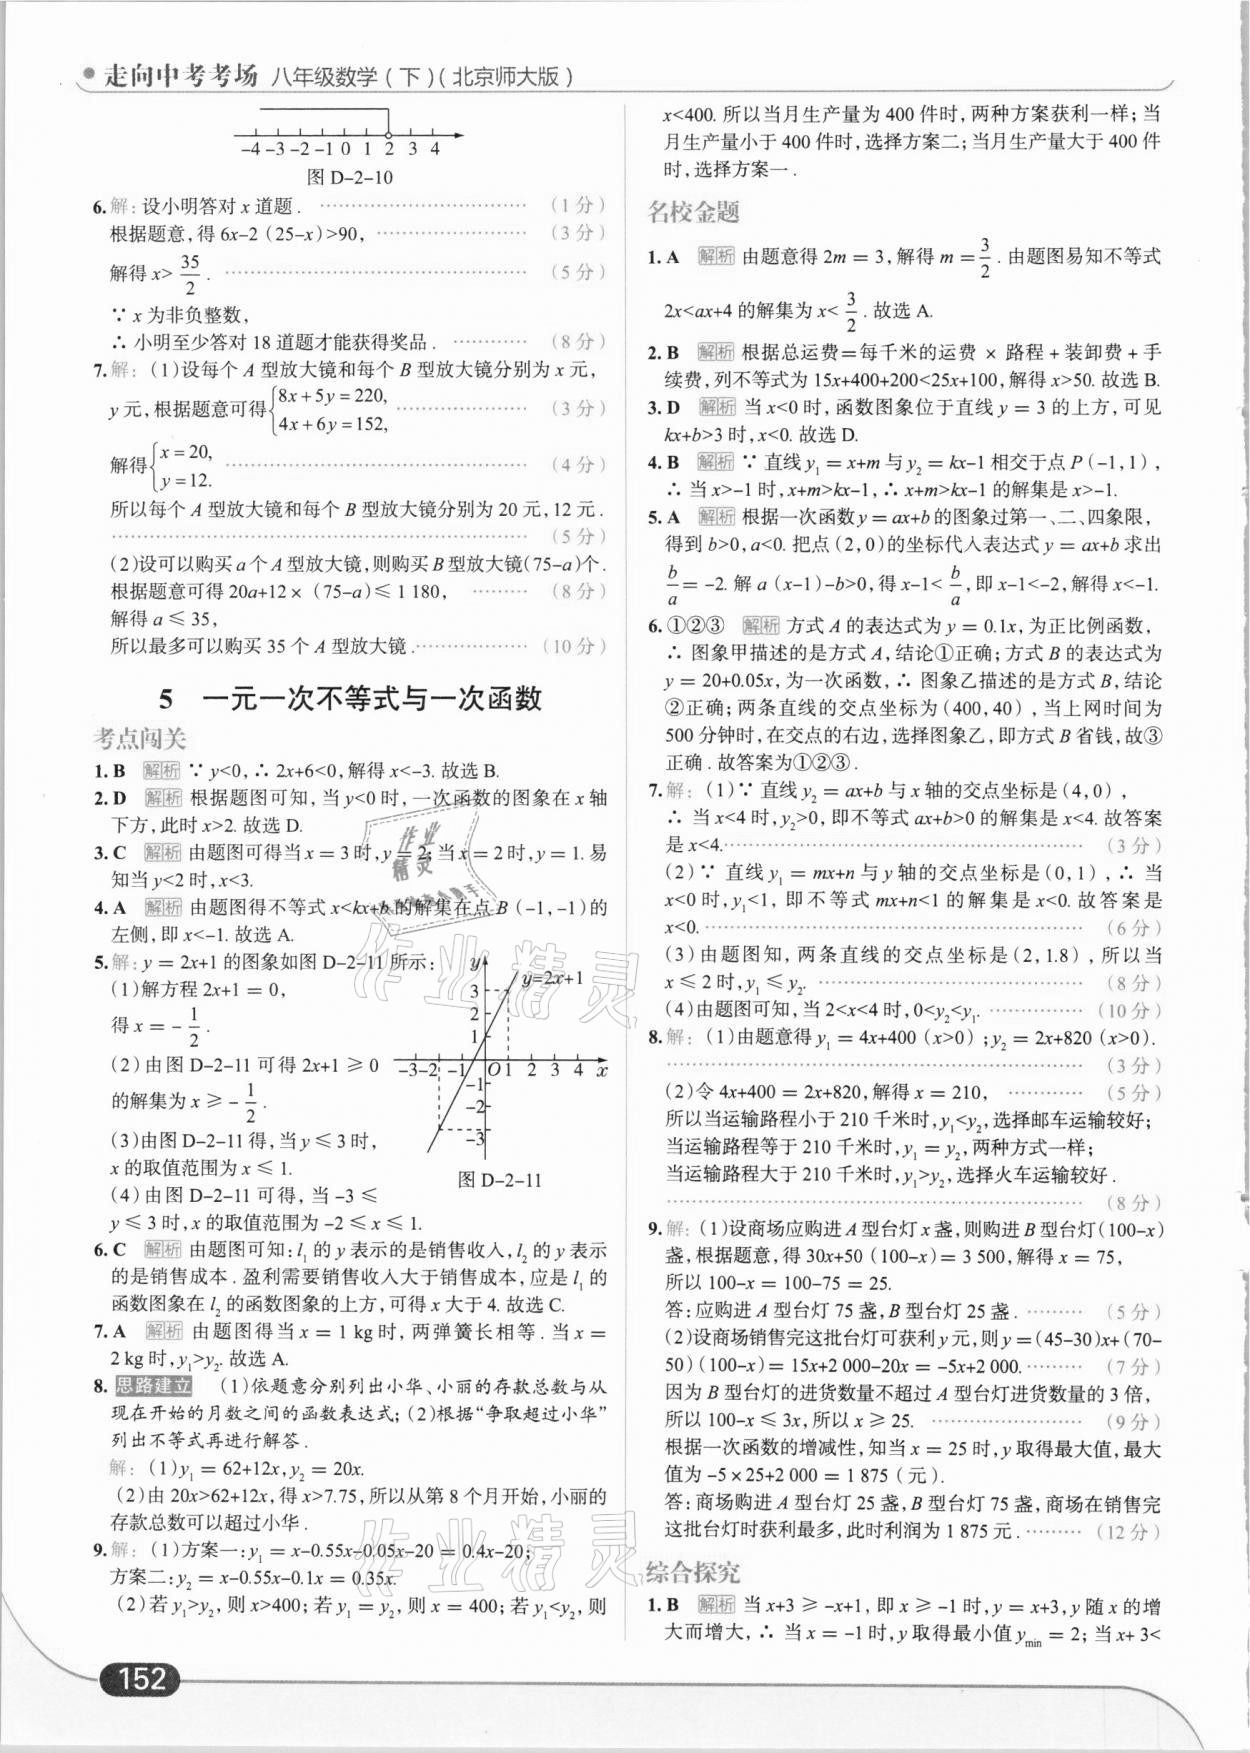 走向中考考场 八年级数学(下)(北京师大版)
-4 -3 -2 -1 0 1 2 3 4
图 D-2-10
6. 解:设小明答对 x 道题. (1分)
根据题意,得 6x-2(25-x)>90, (3分)
解得 x>35/2. (5分)
∵ x 为非负整数,
∴ 小明至少答对 18 道题才能获得奖品. (8分)
7. 解:(1)设每个 A 型放大镜和每个 B 型放大镜分别为 x 元,
y 元,根据题意可得{8x+5y=220, 4x+6y=152, (3分)
解得{x=20, y=12. (4分)
所以每个 A 型放大镜和每个 B 型放大镜分别为 20 元,12 元.
(5分)
(2)设可以购买 a 个 A 型放大镜,则购买 B 型放大镜(75-a)个.
根据题意可得 20a+12×(75-a)≤1 180, (8分)
解得 a≤35,
所以最多可以购买 35 个 A 型放大镜. (10分)
5 一元一次不等式与一次函数
考点闯关
1. B 解析 ∵ y<0,∴ 2x+6<0,解得 x<-3. 故选 B.
2. D 解析 根据题图可知,当 y<0 时,一次函数的图象在 x 轴
下方,此时 x>2. 故选 D.
3. C 解析 由题图可得当 x=3 时,y=2;当 x=2 时,y=1. 易
知当 y<2 时,x<3.
4. A 解析 由题图得不等式 x<kx+b 的解集在点 B(-1,-1)的
左侧,即 x<-1. 故选 A.
5. 解:y=2x+1 的图象如图 D-2-11 所示:
(1)解方程 2x+1=0,
得 x=-1/2.
(2)由图 D-2-11 可得 2x+1≥0
的解集为 x≥-1/2.
(3)由图 D-2-11 得,当 y≤3 时,
x 的取值范围为 x≤1.
(4)由图 D-2-11 可得,当 -3≤
y≤3 时,x 的取值范围为 -2≤x≤1.
y
y=2x+1
3
2
1
-3 -2 -1 O 1 2 3 4 x
-1
-2
-3
图 D-2-11
6. C 解析 由题图可知:l₁ 的 y 表示的是销售收入,l₂ 的 y 表示
的是销售成本. 盈利需要销售收入大于销售成本,应是 l₁ 的
函数图象在 l₂ 的函数图象的上方,可得 x 大于 4. 故选 C.
7. A 解析 由题图得当 x=1 kg 时,两弹簧长相等. 当 x=
2 kg 时,y₁>y₂. 故选 A.
8. 思路建立 (1)依题意分别列出小华、小丽的存款总数与从
现在开始的月数之间的函数表达式;(2)根据“争取超过小华”
列出不等式再进行解答.
解:(1)y₁=62+12x,y₂=20x.
(2)由 20x>62+12x,得 x>7.75,所以从第 8 个月开始,小丽的
存款总数可以超过小华.
9. 解:(1)方案一:y₁=x-0.55x-0.05x-20=0.4x-20;
方案二:y₂=x-0.55x-0.1x=0.35x.
(2)若 y₁>y₂,则 x>400;若 y₁=y₂,则 x=400;若 y₁<y₂,则
x<400. 所以当月生产量为 400 件时,两种方案获利一样;当
月生产量小于 400 件时,选择方案二;当月生产量大于 400 件
时,选择方案一.
名校金题
1. A 解析 由题意得 2m=3,解得 m=3/2. 由题图易知不等式
2x<ax+4 的解集为 x<3/2. 故选 A.
2. B 解析 根据总运费=每千米的运费×路程+装卸费+手
续费,列不等式为 15x+400+200<25x+100,解得 x>50. 故选 B.
3. D 解析 当 x<0 时,函数图象位于直线 y=3 的上方,可见
kx+b>3 时,x<0. 故选 D.
4. B 解析 ∵ 直线 y₁=x+m 与 y₂=kx-1 相交于点 P(-1,1),
∴ 当 x>-1 时,x+m>kx-1,∴ x+m>kx-1 的解集是 x>-1.
5. A 解析 根据一次函数 y=ax+b 的图象过第一、二、四象限,
得到 b>0,a<0. 把点(2,0)的坐标代入表达式 y=ax+b 求出
b/a=-2. 解 a(x-1)-b>0,得 x-1<b/a,即 x-1<-2,解得 x<-1.
6. ①②③ 解析 方式 A 的表达式为 y=0.1x,为正比例函数,
∴ 图象甲描述的是方式 A,结论①正确;方式 B 的表达式为
y=20+0.05x,为一次函数,∴ 图象乙描述的是方式 B,结论
②正确;两条直线的交点坐标为(400,40),当上网时间为
500 分钟时,在交点的右边,选择图象乙,即方式 B 省钱,故③
正确. 故答案为①②③.
7. 解:(1)∵ 直线 y₂=ax+b 与 x 轴的交点坐标是(4,0),
∴ 当 x<4 时,y₂>0,即不等式 ax+b>0 的解集是 x<4. 故答案
是 x<4. (3分)
(2)∵ 直线 y₁=mx+n 与 y 轴的交点坐标是(0,1),∴ 当
x<0 时,y₁<1,即不等式 mx+n<1 的解集是 x<0. 故答案是
x<0. (6分)
(3)由题图知,两条直线的交点坐标是(2,1.8),所以当
x≤2 时,y₁≤y₂. (8分)
(4)由题图可知,当 2<x<4 时,0<y₂<y₁. (10分)
8. 解:(1)由题意得 y₁=4x+400(x>0);y₂=2x+820(x>0).
(3分)
(2)令 4x+400=2x+820,解得 x=210, (5分)
所以当运输路程小于 210 千米时,y₁<y₂,选择邮车运输较好;
当运输路程等于 210 千米时,y₁=y₂,两种方式一样;
当运输路程大于 210 千米时,y₁>y₂,选择火车运输较好.
(8分)
9. 解:(1)设商场应购进 A 型台灯 x 盏,则购进 B 型台灯(100-x)
盏,根据题意,得 30x+50(100-x)=3 500,解得 x=75,
所以 100-x=100-75=25.
答:应购进 A 型台灯 75 盏,B 型台灯 25 盏. (5分)
(2)设商场销售完这批台灯可获利 y 元,则 y=(45-30)x+(70-
50)(100-x)=15x+2 000-20x=-5x+2 000. (7分)
因为 B 型台灯的进货数量不超过 A 型台灯进货数量的 3 倍,
所以 100-x≤3x,所以 x≥25. (9分)
根据一次函数的增减性,知当 x=25 时,y 取得最大值,最大
值为 -5×25+2 000=1 875(元).
答:商场购进 A 型台灯 25 盏,B 型台灯 75 盏,商场在销售完
这批台灯时获利最多,此时利润为 1 875 元. (12分)
综合探究
1. B 解析 当 x+3≥-x+1,即 x≥-1 时,y=x+3,y 随 x 的增
大而增大,∴ 当 x=-1 时,y 取得最小值 y_min=2;当 x+3<
152
作业精灵
作业精灵
作业精灵